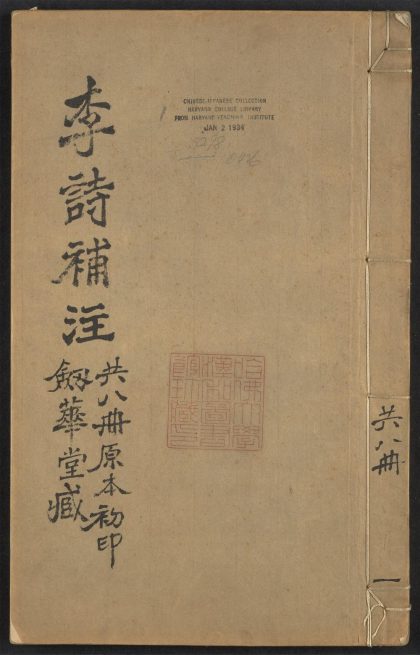 李詩補注
共八冊原本初印
釼華堂臧
CHINESE-JAPANESE COLLECTION
HARVARD COLLEGE LIBRARY
FROM HARVARD-YENCHING INSTITUTE
JAN 2 1934
哈佛大學
漢和圖書
館珍藏印
共八冊
一